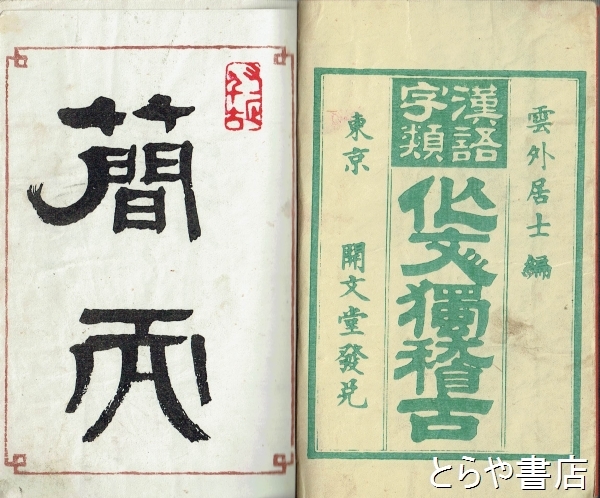 雲外居士編
漢語
字類
作文獨稽古
東京　開文堂發兌
簡
而
とらや書店